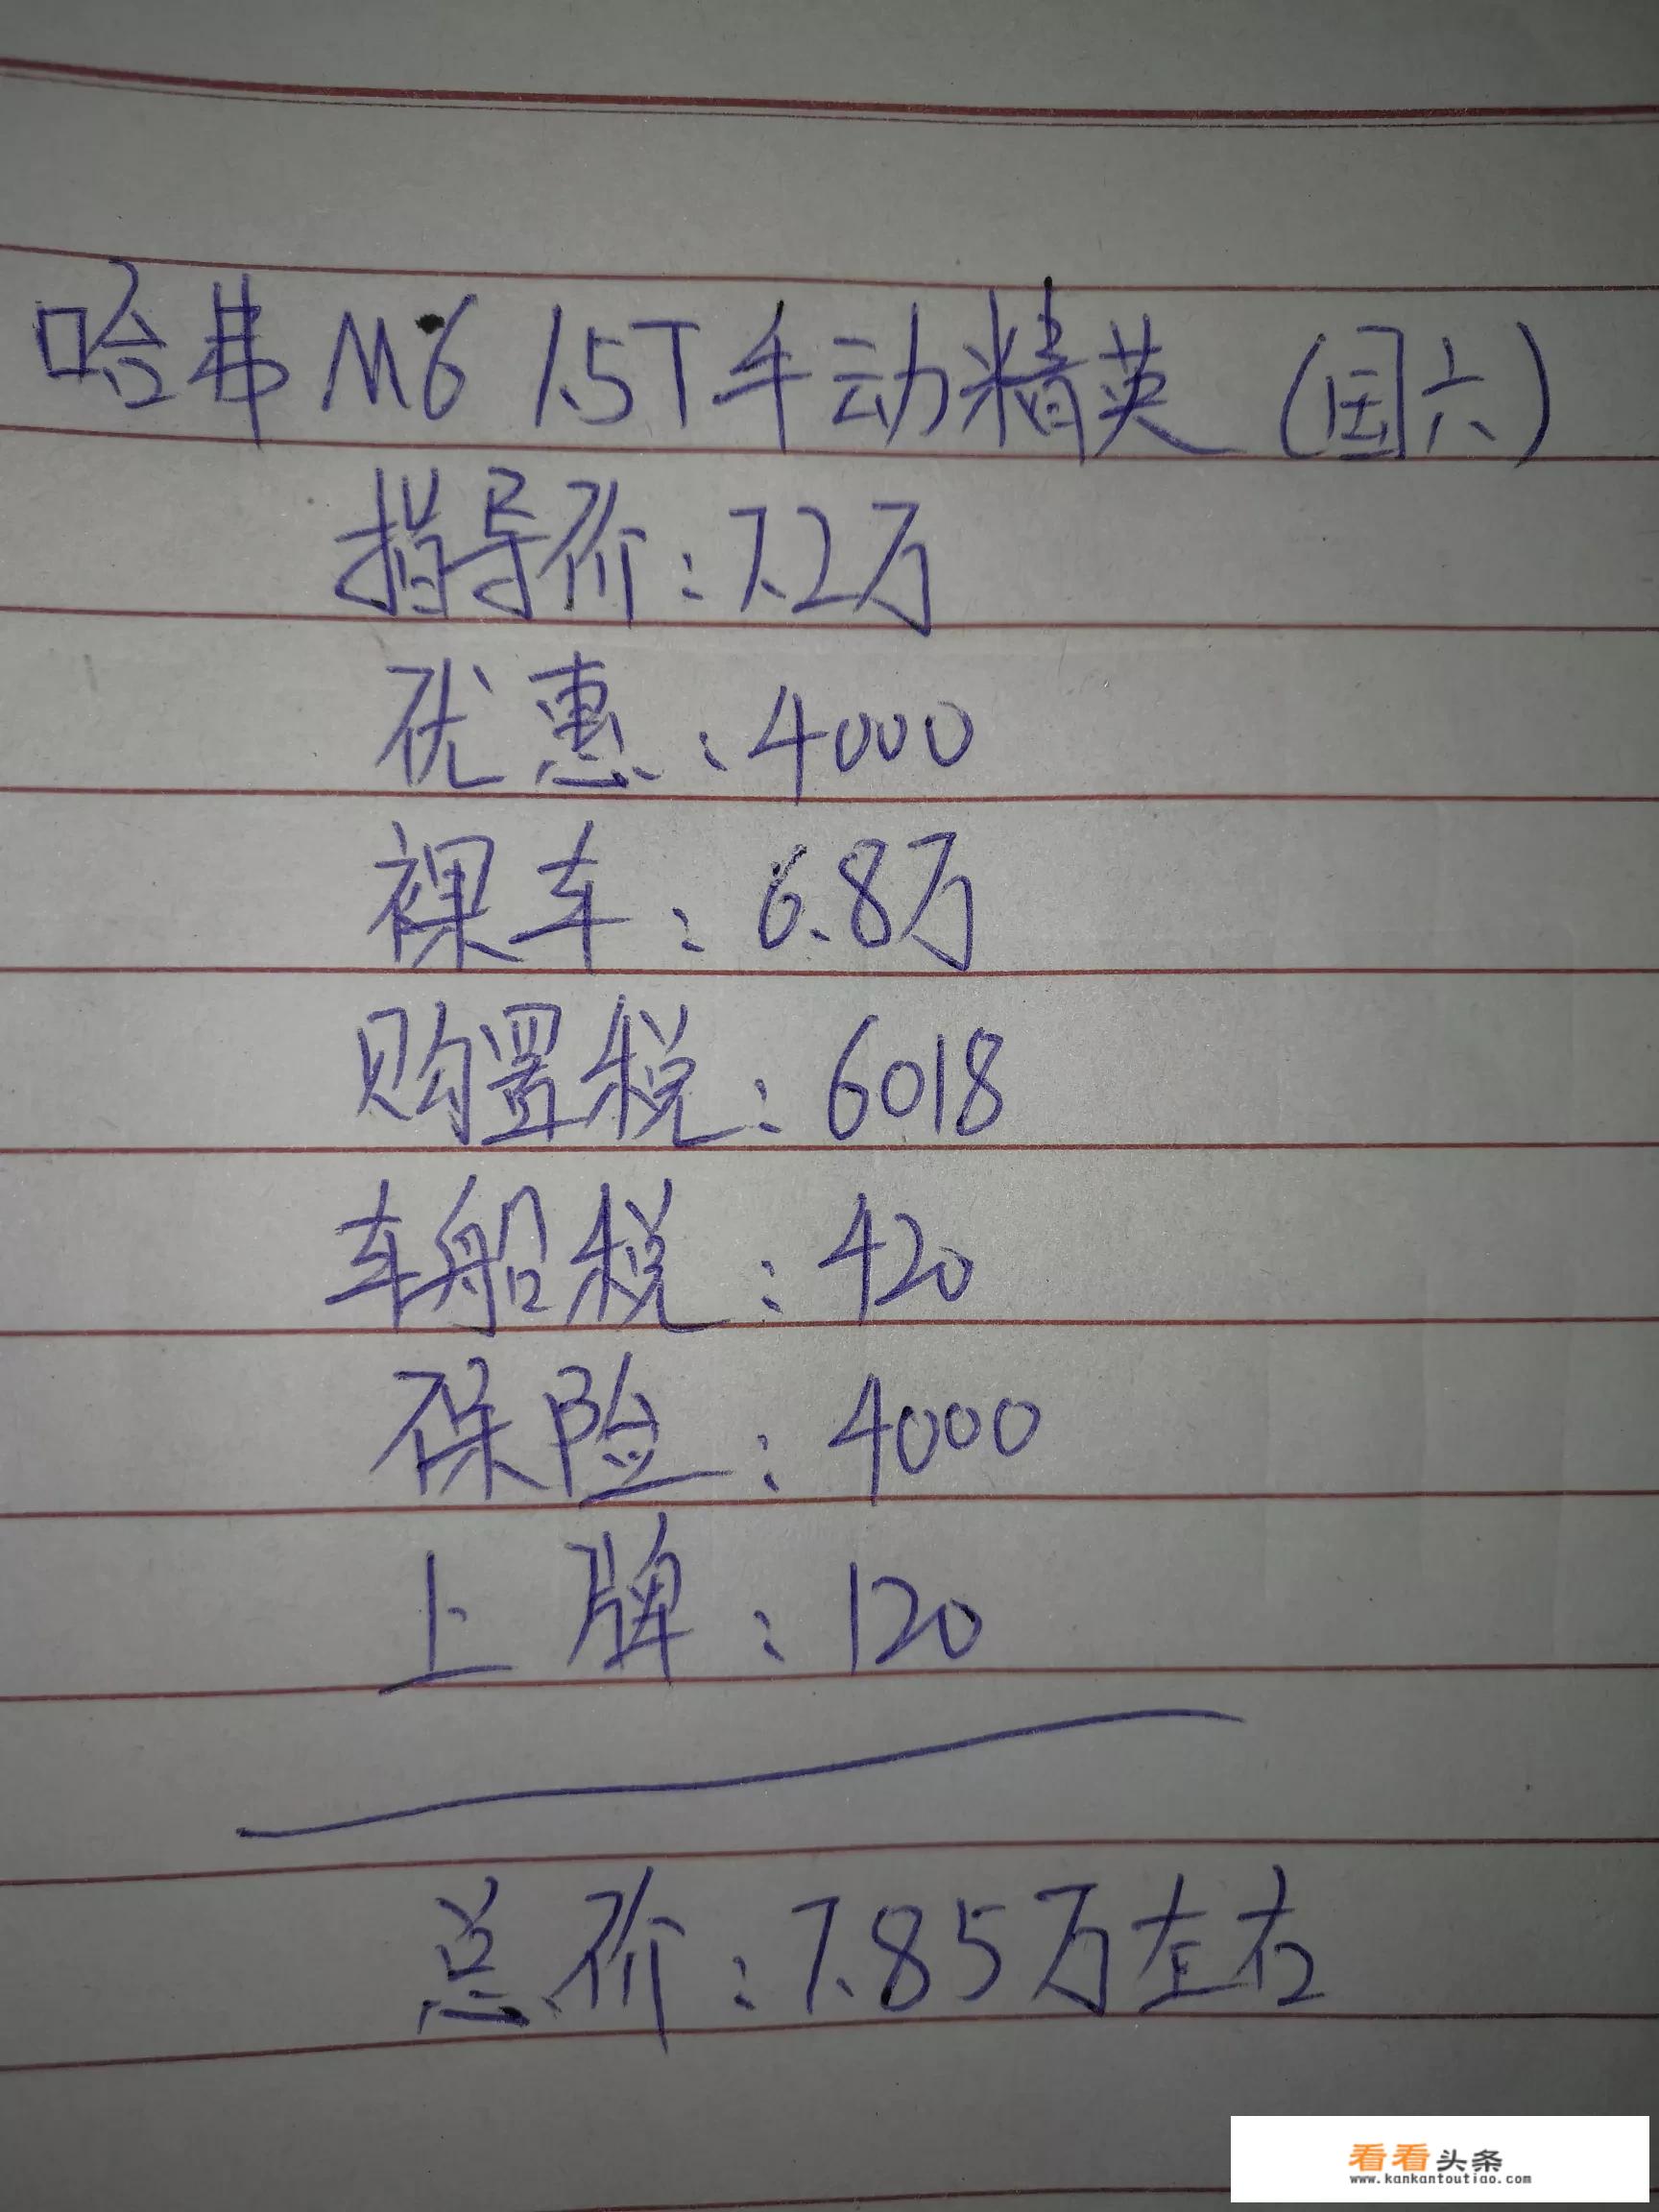 哈弗M6 1.5T手动精英(国六)
指导价:7.2万
优惠:4000
裸车:6.8万
购置税:6018
车船税:420
保险:4000
上牌:120
总价:7.85万左右
看看头条
www.kankantoutiao.com